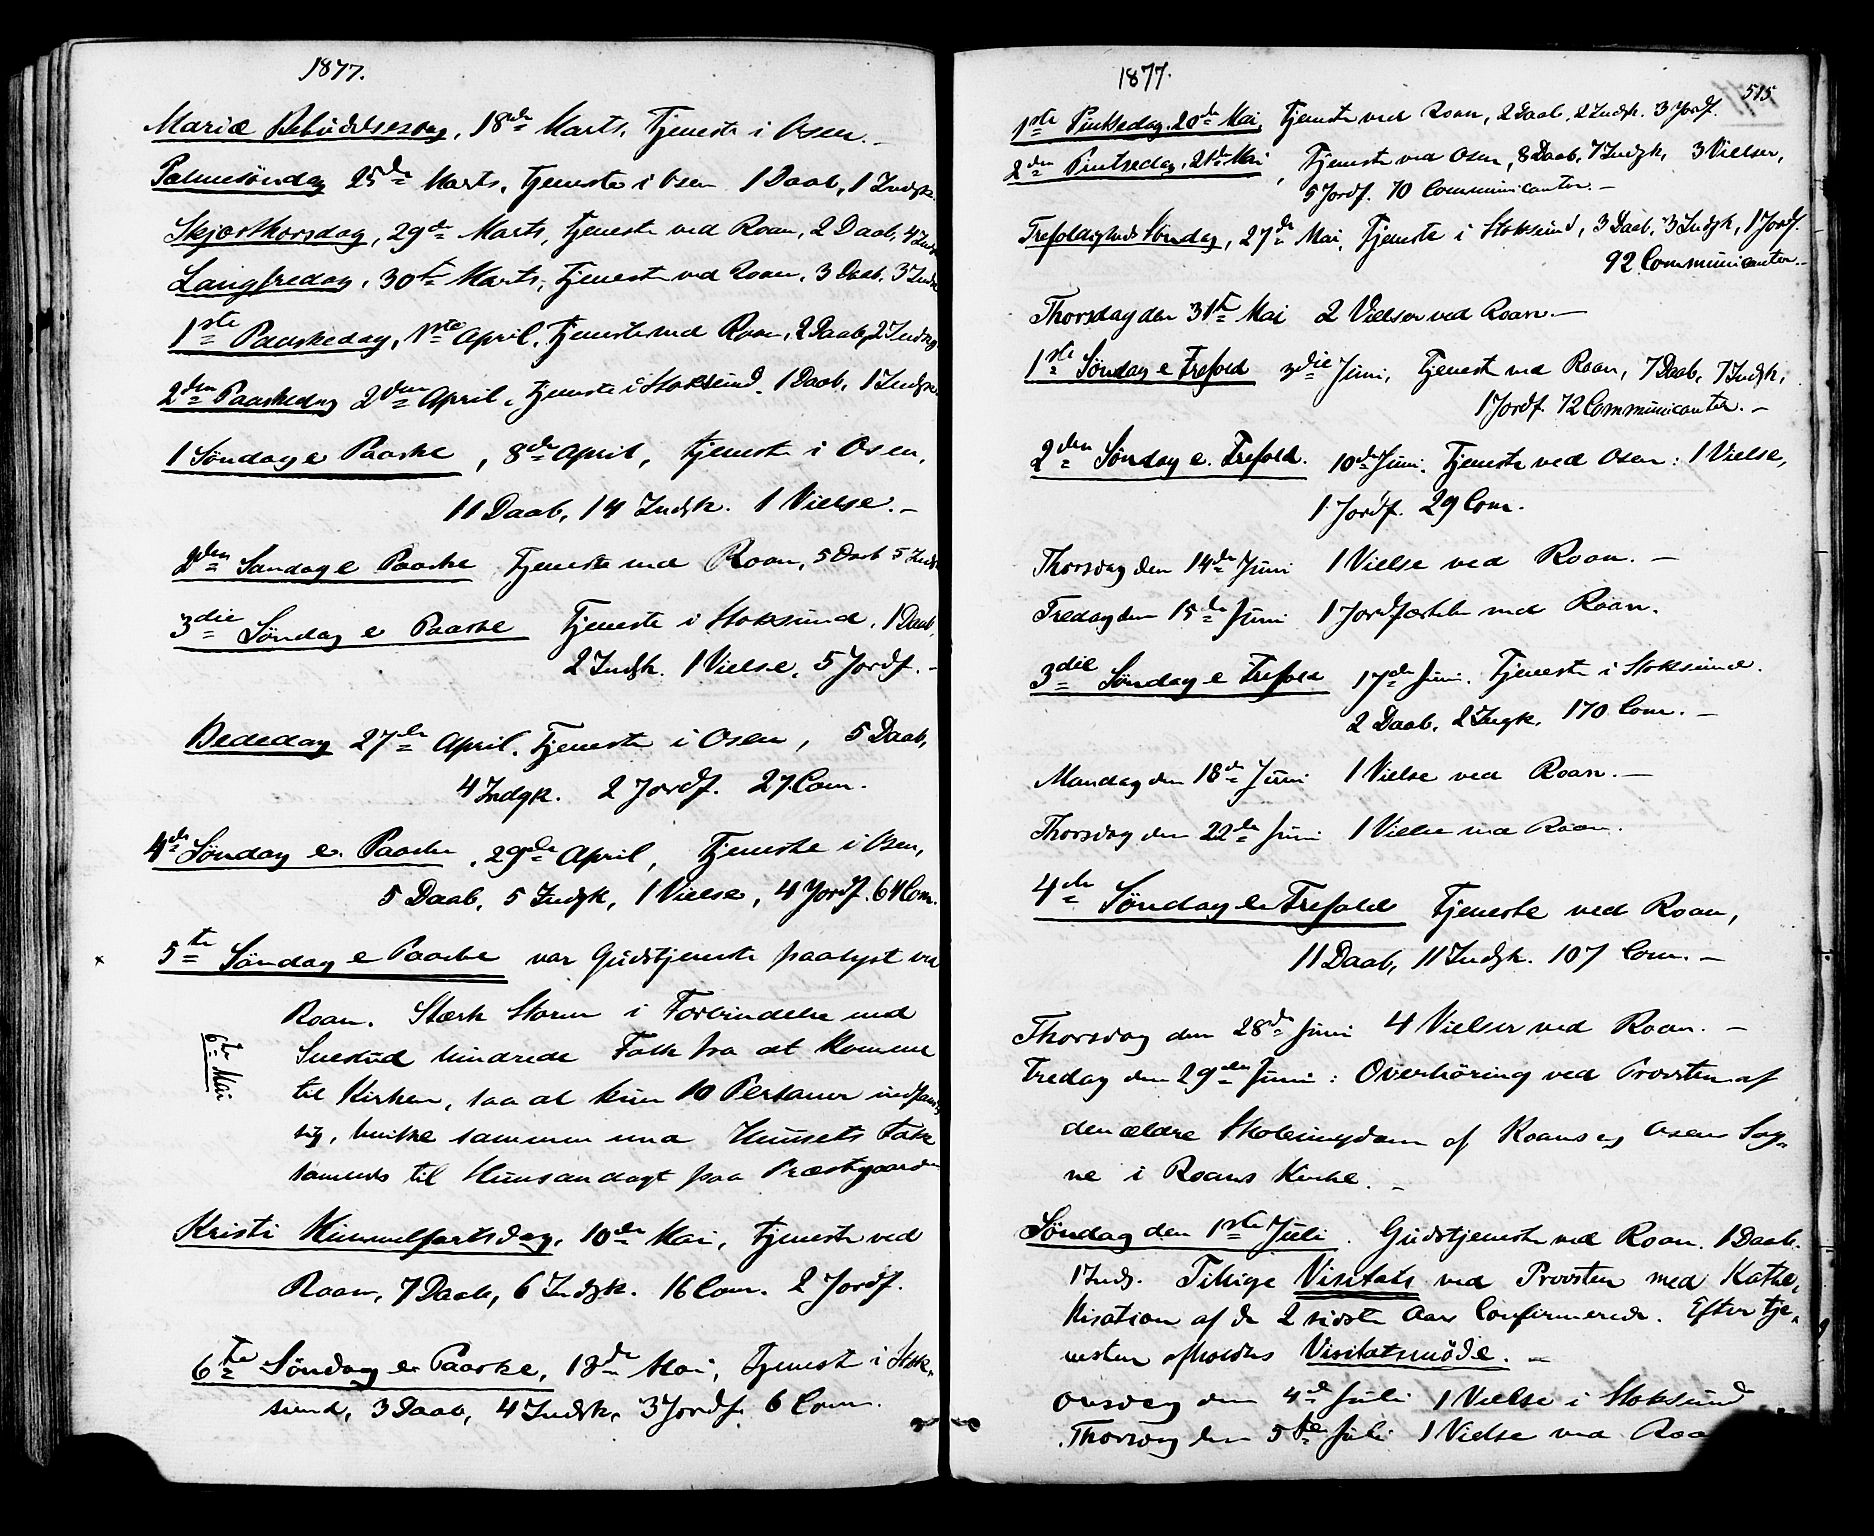 1877.
Mariæ Bebudelsesdag, 18de Marts, Tjeneste i Osen. –
Palmesøndag 25de Marts, Tjeneste i Osen 1 Daab, 1 Indgk.
Skjærthorsdag, 29de Marts, Tjeneste ved Roan, 2 Daab, 4 Indg
Langfredag, 30te Marts, Tjeneste ved Roan, 3 Daab, 3 Indk
1ste Paaskedag, 1ste April, Tjeneste ved Roan, 2 Daab, 2 Indgk
2den Paaskedag 2den April, Tjeneste i Stoksund. 1 Daab, 1 Indgk.
1 Søndag e Paaske, 8de April, Tjeneste i Osen,
11 Daab, 14 Indgk. 1 Vielse. –
2den Søndag e Paaske Tjeneste ved Roan, 5 Daab 5 Indg
3die Søndag e Paaske Tjeneste i Stoksund, 1 Daab,
2 Indgk. 1 Vielse, 5 Jordf. –
Bededag 27de April, Tjeneste i Osen, 5 Daab,
4 Indgk. 2 Jordf. 27 Com.
4de Søndag e. Paaske, 29de April, Tjeneste i Osen,
5 Daab, 5 Indgk, 1 Vielse, 4 Jordf. 64 Com.
5te Søndag e Paaske var Gudstjeneste paalyst ved
6te Mai
Roan. Stærk Storm i Forbindelse med
Snetud hindrede Folk fra at komme
til Kirken, saa at kun 10 Personer indfandt
sig, hvilke sammen med Huusets Folk
samledes til Huusandagt paa Præstegaarden
Kristi Himmelfartsdag, 10de Mai, Tjeneste ved
Roan, 7 Daab, 6 Indgk. 16 Com. 2 Jordf.
6te Søndag e. Paaske, 13de Mai, Tjeneste i Stok-
sund, 3 Daab, 4 Indgk, 3 Jordf. 6 Com.
1877.
515
1ste Pintsedag, 20de Mai, Tjeneste ved Roan, 2 Daab, 2 Indgk. 3 Jordf.
2den Pintsedag, 21de Mai, Tjeneste ved Osen, 8 Daab, 7 Indgk, 3 Vielser,
5 Jordf. 70 Communicanter. –
Trefoldigheds Søndag, 27de Mai, Tjeneste i Stoksund, 3 Daab, 3 Indgk, 1 Jordf.
92 Communicanter. –
Thorsdag den 31te Mai 2 Vielser ved Roan. –
1ste Søndag e Trefold 3die Juni, Tjeneste ved Roan, 7 Daab, 7 Indgk,
1 Jordf. 72 Communicanter. –
2den Søndag e. Trefold. 10de Juni, Tjeneste ved Osen: 1 Vielse,
1 Jordf. 29 Com.
Thorsdag den 14de Juni 1 Vielse ved Roan. –
Fredag den 15de Juni 1 Jordfæstelse ved Roan.
3die Søndag e Trefold 17de Juni. Tjeneste i Stoksund.
2 Daab, 2 Ingk, 170 Com. –
Mandag den 18de Juni 1 Vielse ved Roan. –
Thorsdag den 22de Juni 1 Vielse ved Roan.
4de Søndag e Trefold Tjeneste ved Roan,
11 Daab, 11 Indgk. 107 Com. –
Thorsdag den 28de Juni 4 Vielser ved Roan. –
Fredag den 29de Juni: Overhøring ved Provsten af
den ældre Skoleungdom af Roans og Osens Sog-
ne i Roans Kirke. –
Søndag den 1ste Juli. Gudstjeneste ved Roan. 1 Daab.
1 Indg. Tillige Visitats ved Provsten med Kathe-
kisation af de 2 sidste Aars Confirmerede. Efter Tje-
nesten afholdtes Visitatsmøde. –
Onsdag den 4de Juli 1 Vielse i Stoksund
Thorsdag den 5te Juli 1 Vielse ved Roa